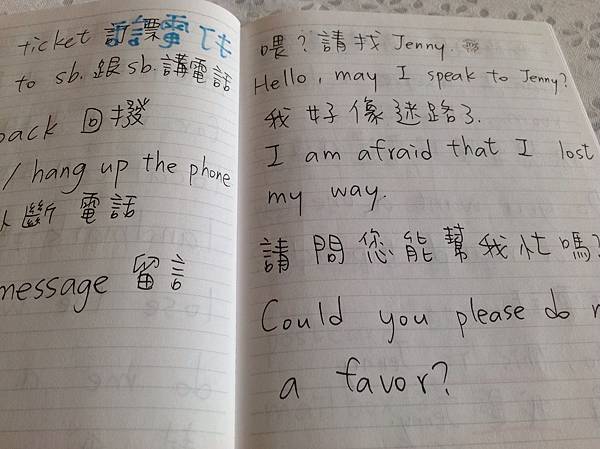 ticket 訂票 打電話
to sb. 跟sb. 講電話
back 回撥
/ hang up the phone
斷 電話
message 留言
喂?請找 Jenny.
Hello, may I speak to Jenny?
我好像迷路了.
I am afraid that I lost
my way.
請問您能幫我忙嗎?
Could you please do
a favor?